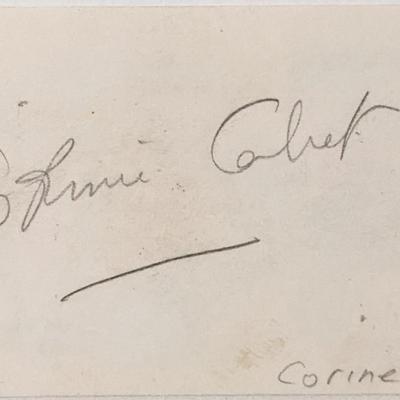 Corinne Calvet
Corine